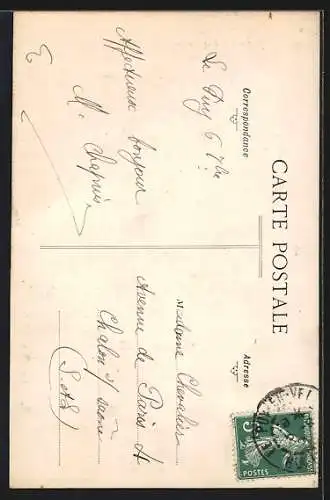 CARTE POSTALE
Correspondance
Adresse
Le Puy 6 7bre
Affectueux bonjour
M. Chapuis
Madame Chevalier
Avenue de Paris 4
Chalon s/ Saône
(S. et L.)
5
POSTES